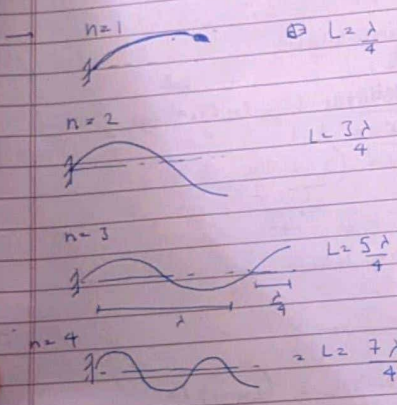 n=1 L = λ/4
n = 2 L = 3λ/4
n = 3 L = 5λ/4
λ/4
λ
n = 4 = L = 7λ/4